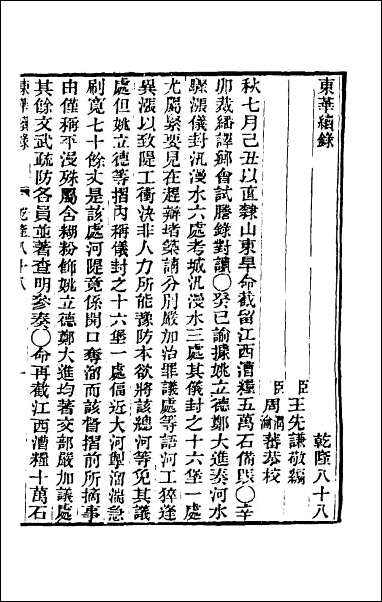 東華續錄
乾隆八十八
臣王先謙敬編
臣周潤蕃恭校
瀹
秋七月己丑以直隸山東旱命截留江西漕糧五萬石備賑○辛
卯裁繙譯鄉會試謄錄對讀○癸巳諭據姚立德鄭大進奏河水
驟漲儀封汛漫水六處考城汛漫水三處其儀封之十六堡一處
尤屬緊要見在趕辦堵築請分別嚴加治罪議處等語河工猝逢
異漲以致隄工衝決非人力所能豫防本欲將該總河等免其議
處但姚立德等摺內稱儀封之十六堡一處偪近大河掣溜湍急
刷寬七十餘丈是該處河隄竟係開口奪溜而該督摺前所摘事
由僅稱平漫殊屬含糊粉飾姚立德鄭大進均著交部嚴加議處
其餘文武疏防各員並著查明參奏○命再截江西漕糧十萬石
東華續錄
乾隆八十八
一